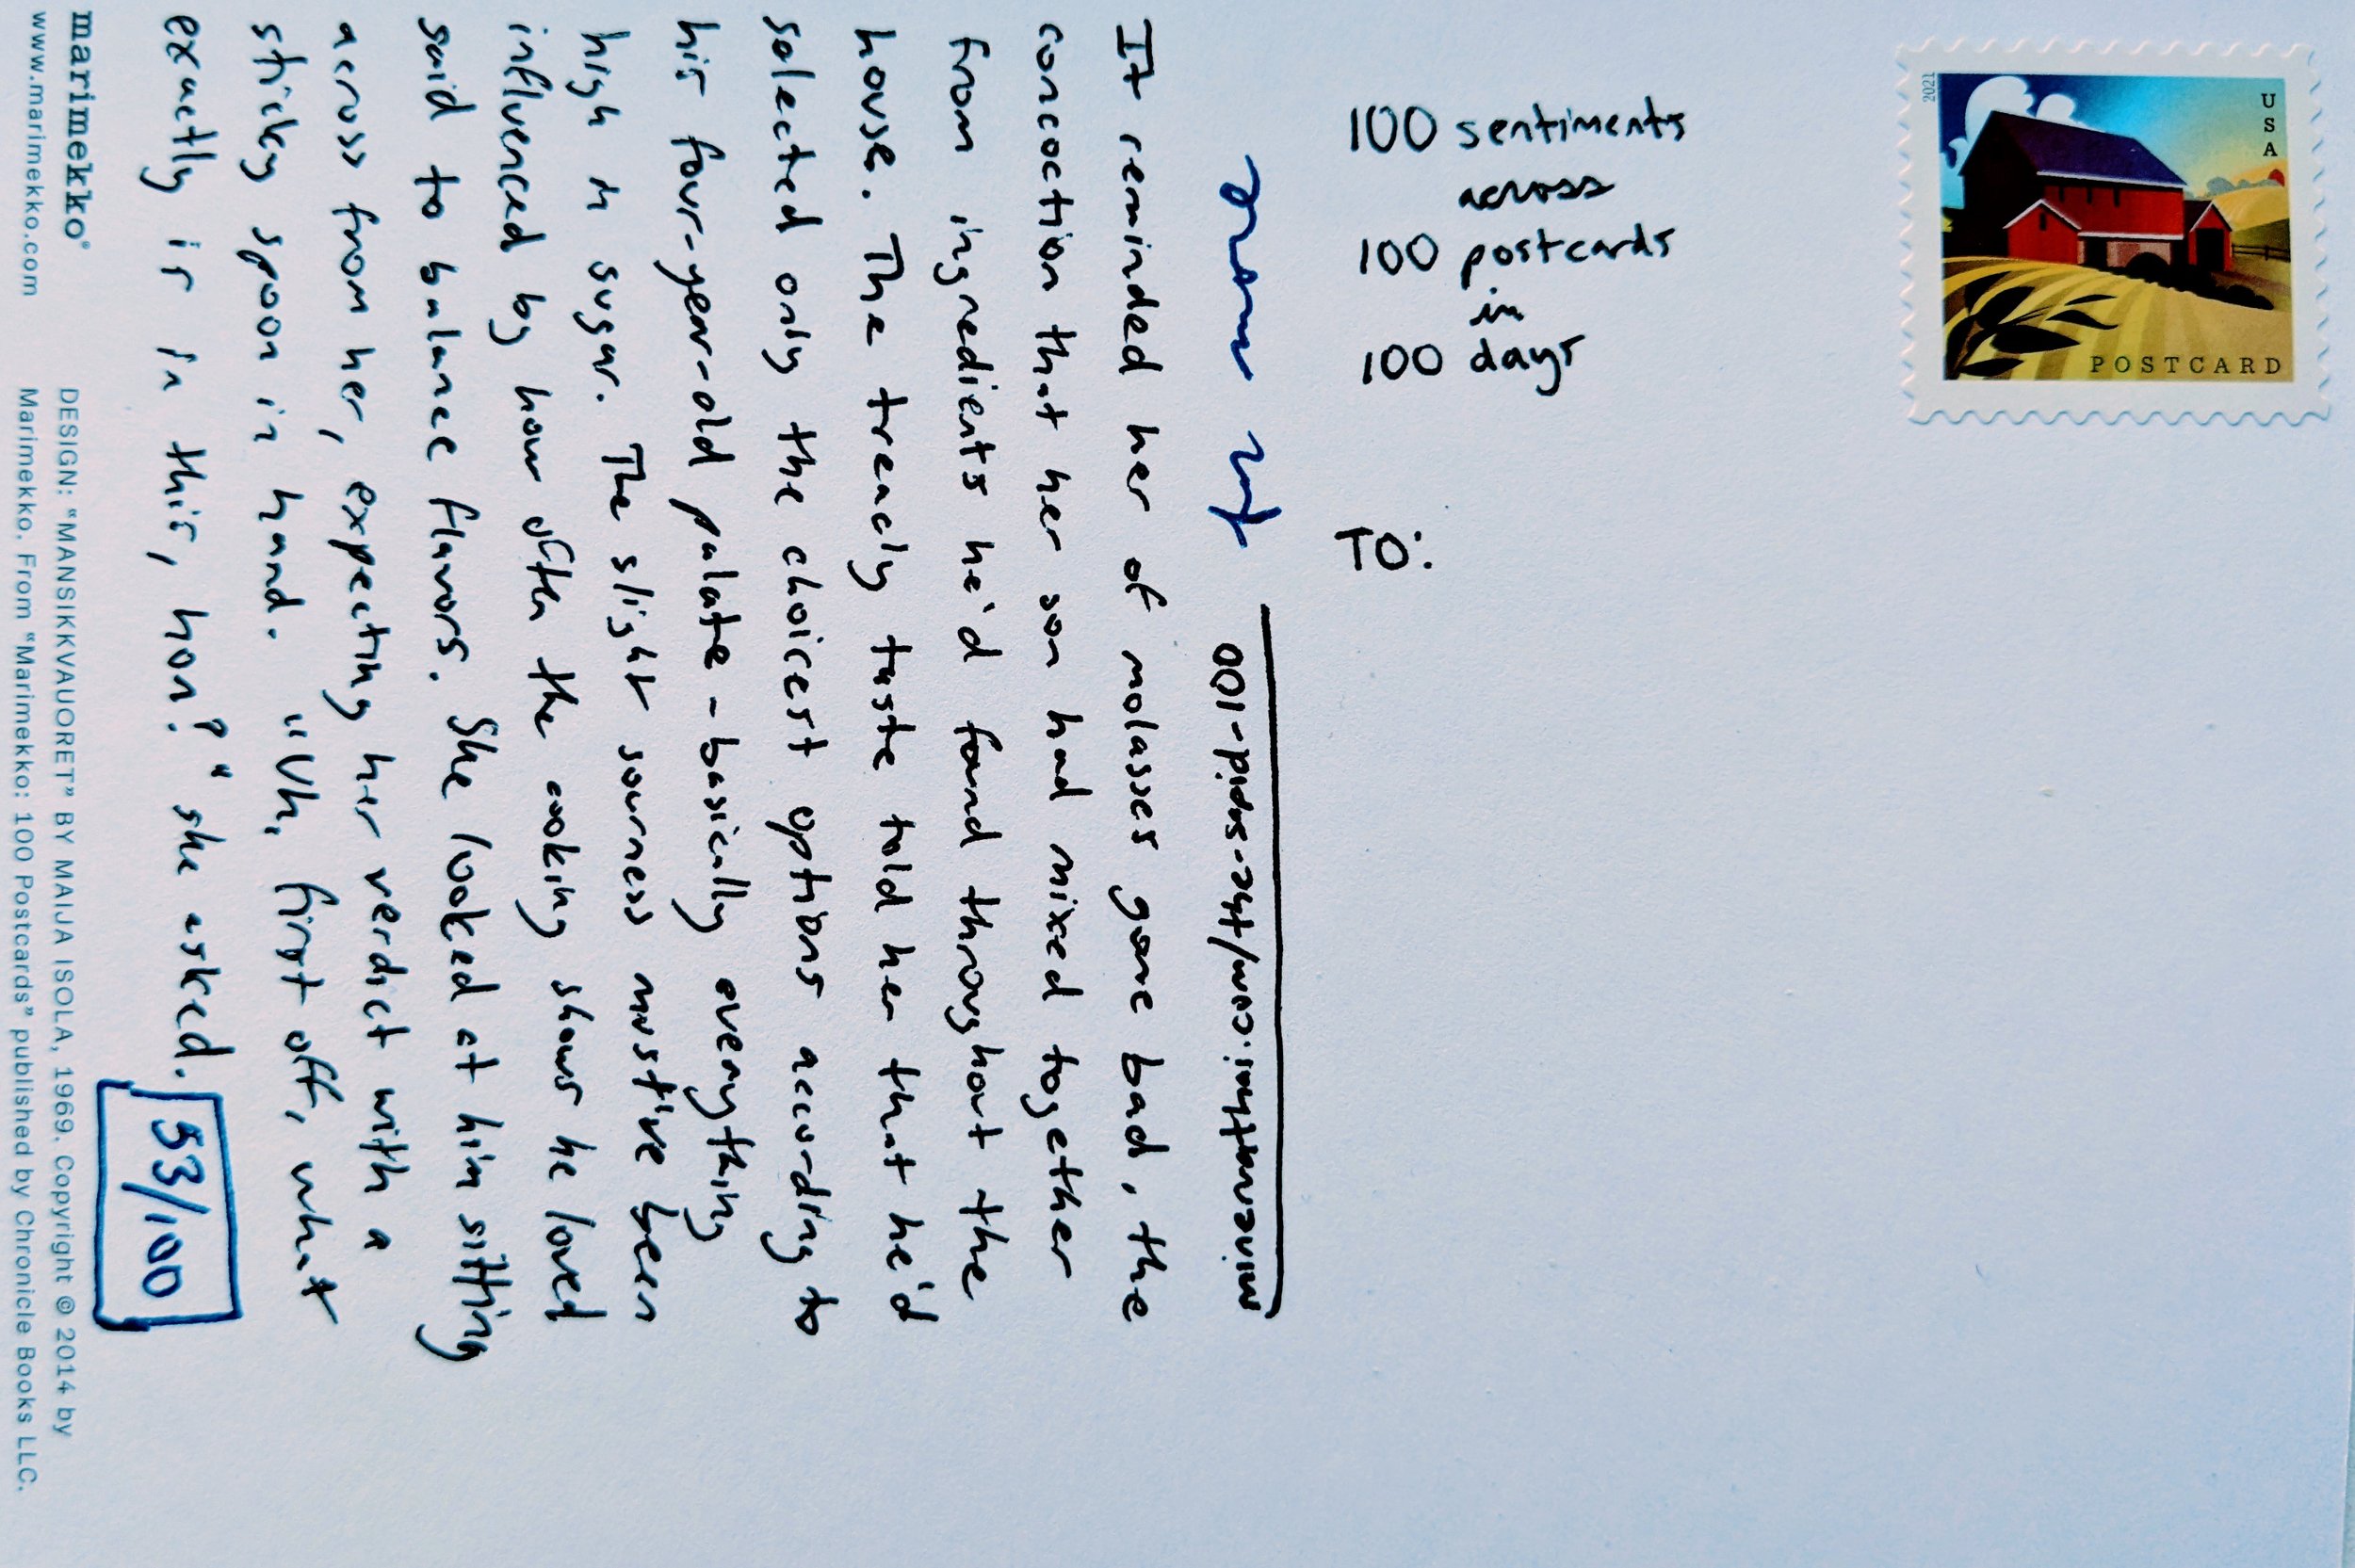 USA
POSTCARD
2021
100 sentiments
across
100 postcards
in
100 days
To:
minerarthwi.com/the-spid-100
It reminded her of molasses gone bad, the
concoction that her son had mixed together
from ingredients he'd found throughout the
house. The treacly taste told her that he'd
selected only the choicest options according to
his four-year-old palate - basically everything
high in sugar. The slight sourness must've been
influenced by how often the cooking shows he loved
said to balance flavors. She looked at him sitting
across from her, expecting her verdict with a
sticky spoon in hand. "Uh, first off, what
exactly is in this, hon?" she asked.
53/100
marimekko®
www.marimekko.com
DESIGN: "MANSIKKVAUORET" BY MAIJA ISOLA, 1969. Copyright © 2014 by
Marimekko. From "Marimekko: 100 Postcards" published by Chronicle Books LLC.